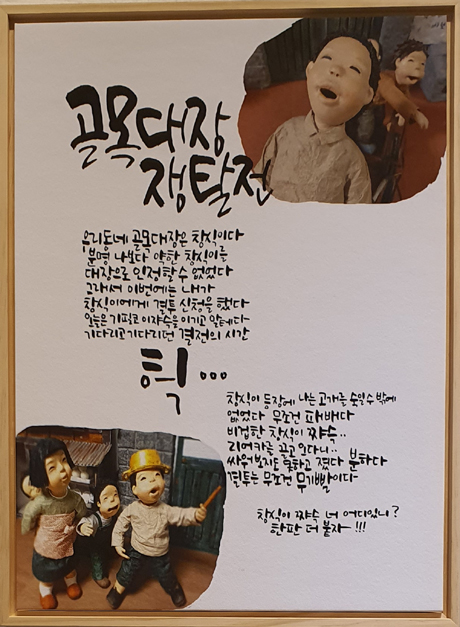 골목대장
쟁탈전
우리동네 골목대장은 창식이다
분명 나보다 약한 창식이를
대장으로 인정할수 없었다
그래서 이번에는 내가
창식이에게 결투 신청을 했다
오늘은 기필코 이쟈슥을 이기고 말테다
기다리고 기다리던 결전의 시간
헉...
창식이 등장에 나는 고개를 숙일수 밖에
없었다 무조건 패배다
비겁한 창식이 쨔슥..
리어카를 끌고 온다니..
싸워보지도 못하고 졌다 분하다
결투는 무조건 무기빨이다
창식이 쨔슥 너 어디있니?
한판 더 붙자 !!!